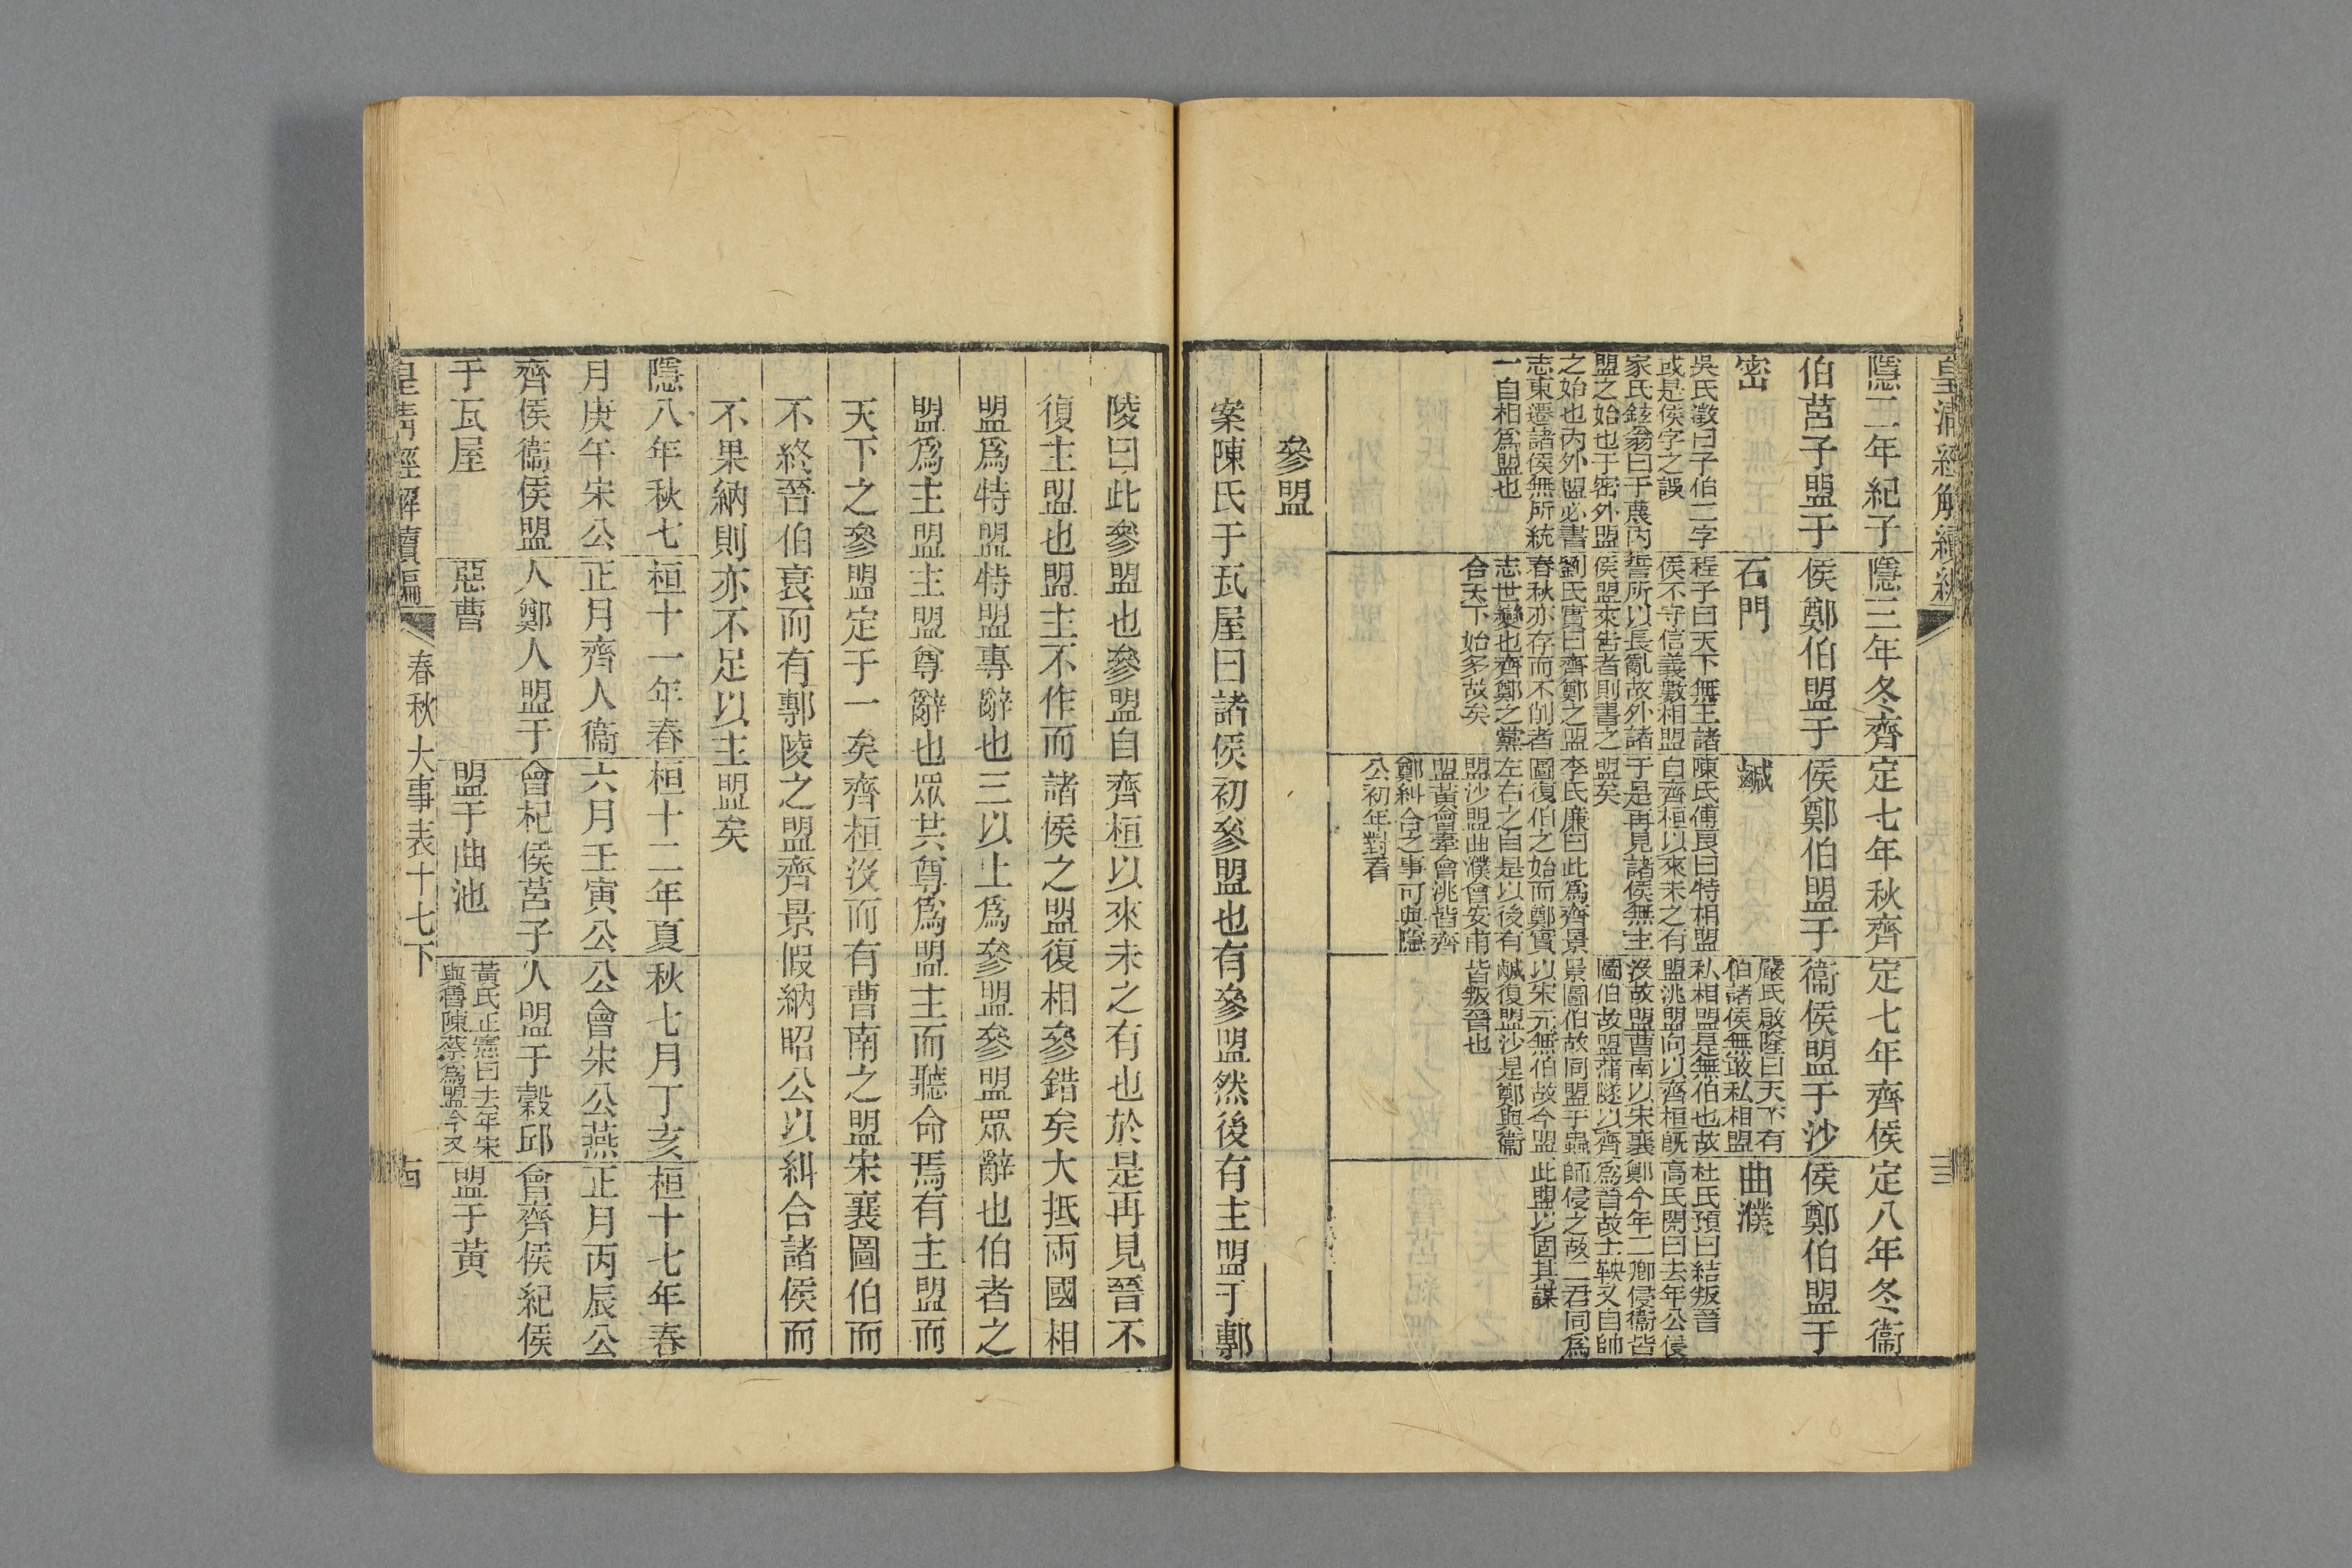 皇清經解續編
三
隱二年紀子
伯莒子盟于
密
吳氏澂曰子伯二字
或是侯字之誤
家氏鉉翁曰于蔑內
盟之始也于密外盟
之始也內外盟必書
志東遷諸侯無所統
一自相爲盟也
隱三年冬齊
侯鄭伯盟于
石門
程子曰天下無王諸
侯不守信義數相盟
誓所以長亂故外諸
侯盟來告者則書之
劉氏實曰齊鄭之盟
春秋亦存而不削者
志世變也齊鄭之黨
合天下始多故矣
定七年秋齊
侯鄭伯盟于
鹹
陳氏傅良曰特相盟
自齊桓以來未之有
于是再見諸侯無主
盟矣
李氏廉曰此爲齊景
圖復伯之始而鄭實
左右之自是以後有
盟沙盟曲濮會安甫
盟黃會牽會洮皆齊
鄭糾合之事可與隱
公初年對看
定七年齊侯
衞侯盟于沙
嚴氏啟隆曰天下有
伯諸侯無敢私相盟
私相盟是無伯也故
盟洮盟向以齊桓既
沒故盟曹南以宋襄
圖伯故盟蒲隧以齊
景圖伯故同盟于蟲
以宋元無伯故今盟
鹹復盟沙是鄭與衞
皆叛晉也
定八年冬衞
侯鄭伯盟于
曲濮
杜氏預曰結叛晉
高氏閌曰去年公侵
鄭今年二卿侵衞皆
爲晉故士鞅又自帥
師侵之故二君同爲
此盟以固其謀
參盟
案陳氏于瓦屋曰諸侯初參盟也有參盟然後有主盟于鄟
陵曰此參盟也參盟自齊桓以來未之有也於是再見晉不
復主盟也盟主不作而諸侯之盟復相參錯矣大抵兩國相
盟爲特盟特盟專辭也三以上爲參盟參盟眾辭也伯者之
盟爲主盟主盟尊辭也眾共尊爲盟主而聽命焉有主盟而
天下之參盟定于一矣齊桓沒而有曹南之盟宋襄圖伯而
不終晉伯衰而有鄟陵之盟齊景假納昭公以糾合諸侯而
不果納則亦不足以主盟矣
隱八年秋七
月庚午宋公
齊侯衞侯盟
于瓦屋
桓十一年春
正月齊人衞
人鄭人盟于
惡曹
桓十二年夏
六月壬寅公
會杞侯莒子
盟于曲池
秋七月丁亥
公會宋公燕
人盟于穀邱
黃氏正憲曰去年宋
與魯陳蔡爲盟今又
桓十七年春
正月丙辰公
會齊侯紀侯
盟于黃
皇清經解續編
春秋大事表十七下
古